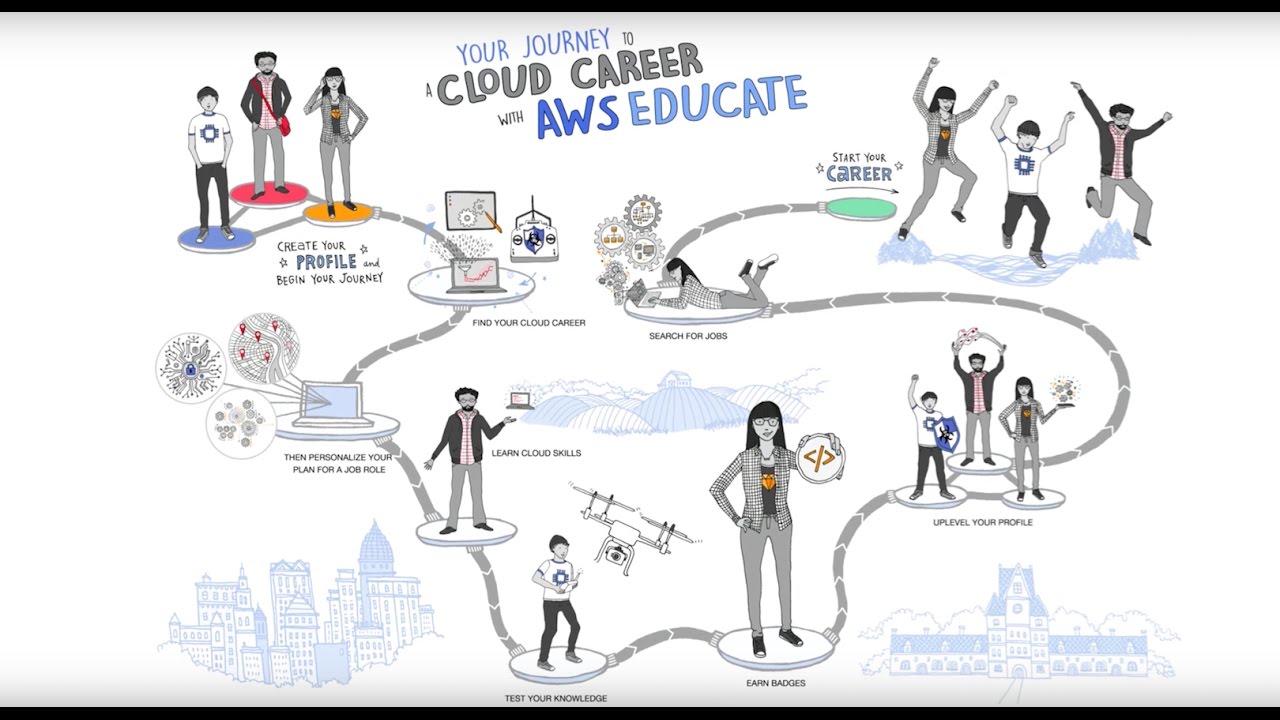 YOUR JOURNEY TO
A CLOUD CAREER
WITH AWS EDUCATE
CREATE YOUR
PROFILE and
BEGIN YOUR JOURNEY
FIND YOUR CLOUD CAREER
THEN PERSONALIZE YOUR
PLAN FOR A JOB ROLE
LEARN CLOUD SKILLS
TEST YOUR KNOWLEDGE
EARN BADGES
</>
UPLEVEL YOUR PROFILE
SEARCH FOR JOBS
START YOUR
CAREER